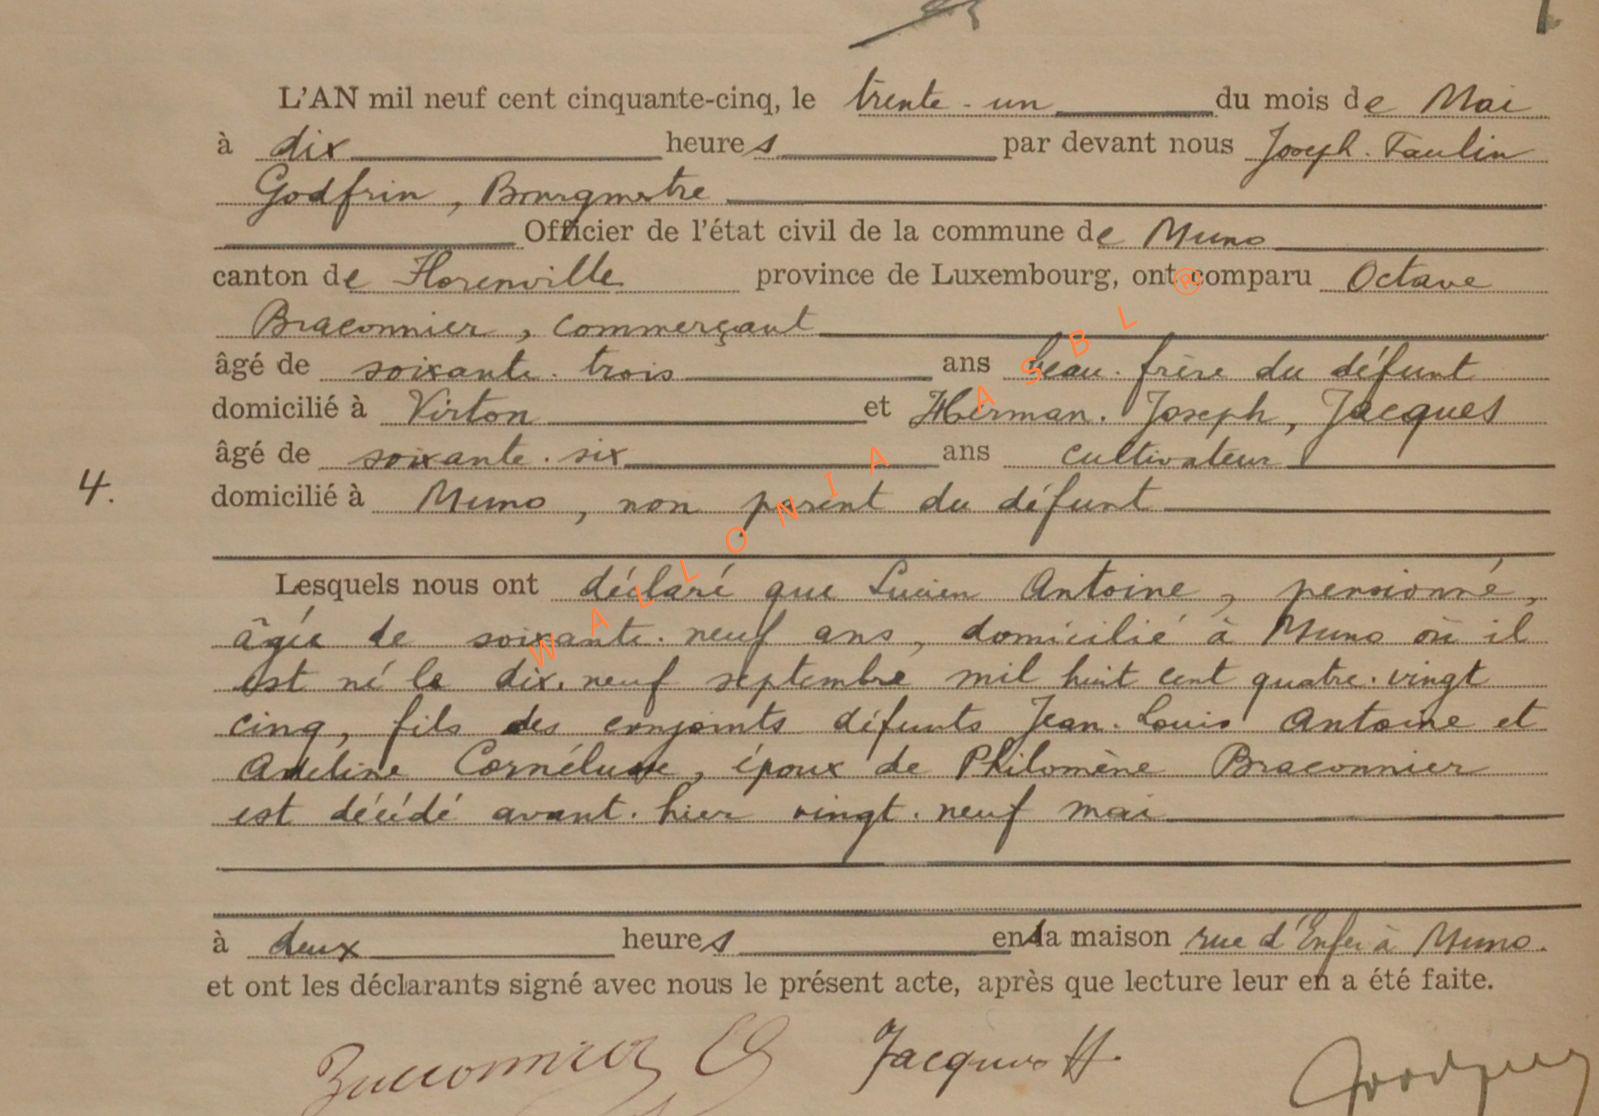 L'AN mil neuf cent cinquante-cinq, le trente-un du mois de Mai
à dix heures par devant nous Joseph-Paulin
Godfrin, Bourgmestre
Officier de l'état civil de la commune de Muno
canton de Florenville province de Luxembourg, ont comparu Octave
Braconnier, commerçant
âgé de soixante-trois ans beau-frère du défunt
domicilié à Virton et Herman-Joseph, Jacques
âgé de soixante-six ans cultivateur
4.
domicilié à Muno, non parent du défunt
Lesquels nous ont déclaré que Lucien Antoine, pensionné,
âgée de soixante-neuf ans, domicilié à Muno où il
est né le dix-neuf septembre mil huit cent quatre-vingt
cinq, fils des conjoints défunts Jean-Louis Antoine et
Adeline Cornélusse, époux de Philomène Braconnier
est décédé avant-hier vingt-neuf mai
à deux heures en sa maison rue d'Enfer à Muno.
et ont les déclarants signé avec nous le présent acte, après que lecture leur en a été faite.
Braconnier Jacques H.
WALLONIA ASBL ®